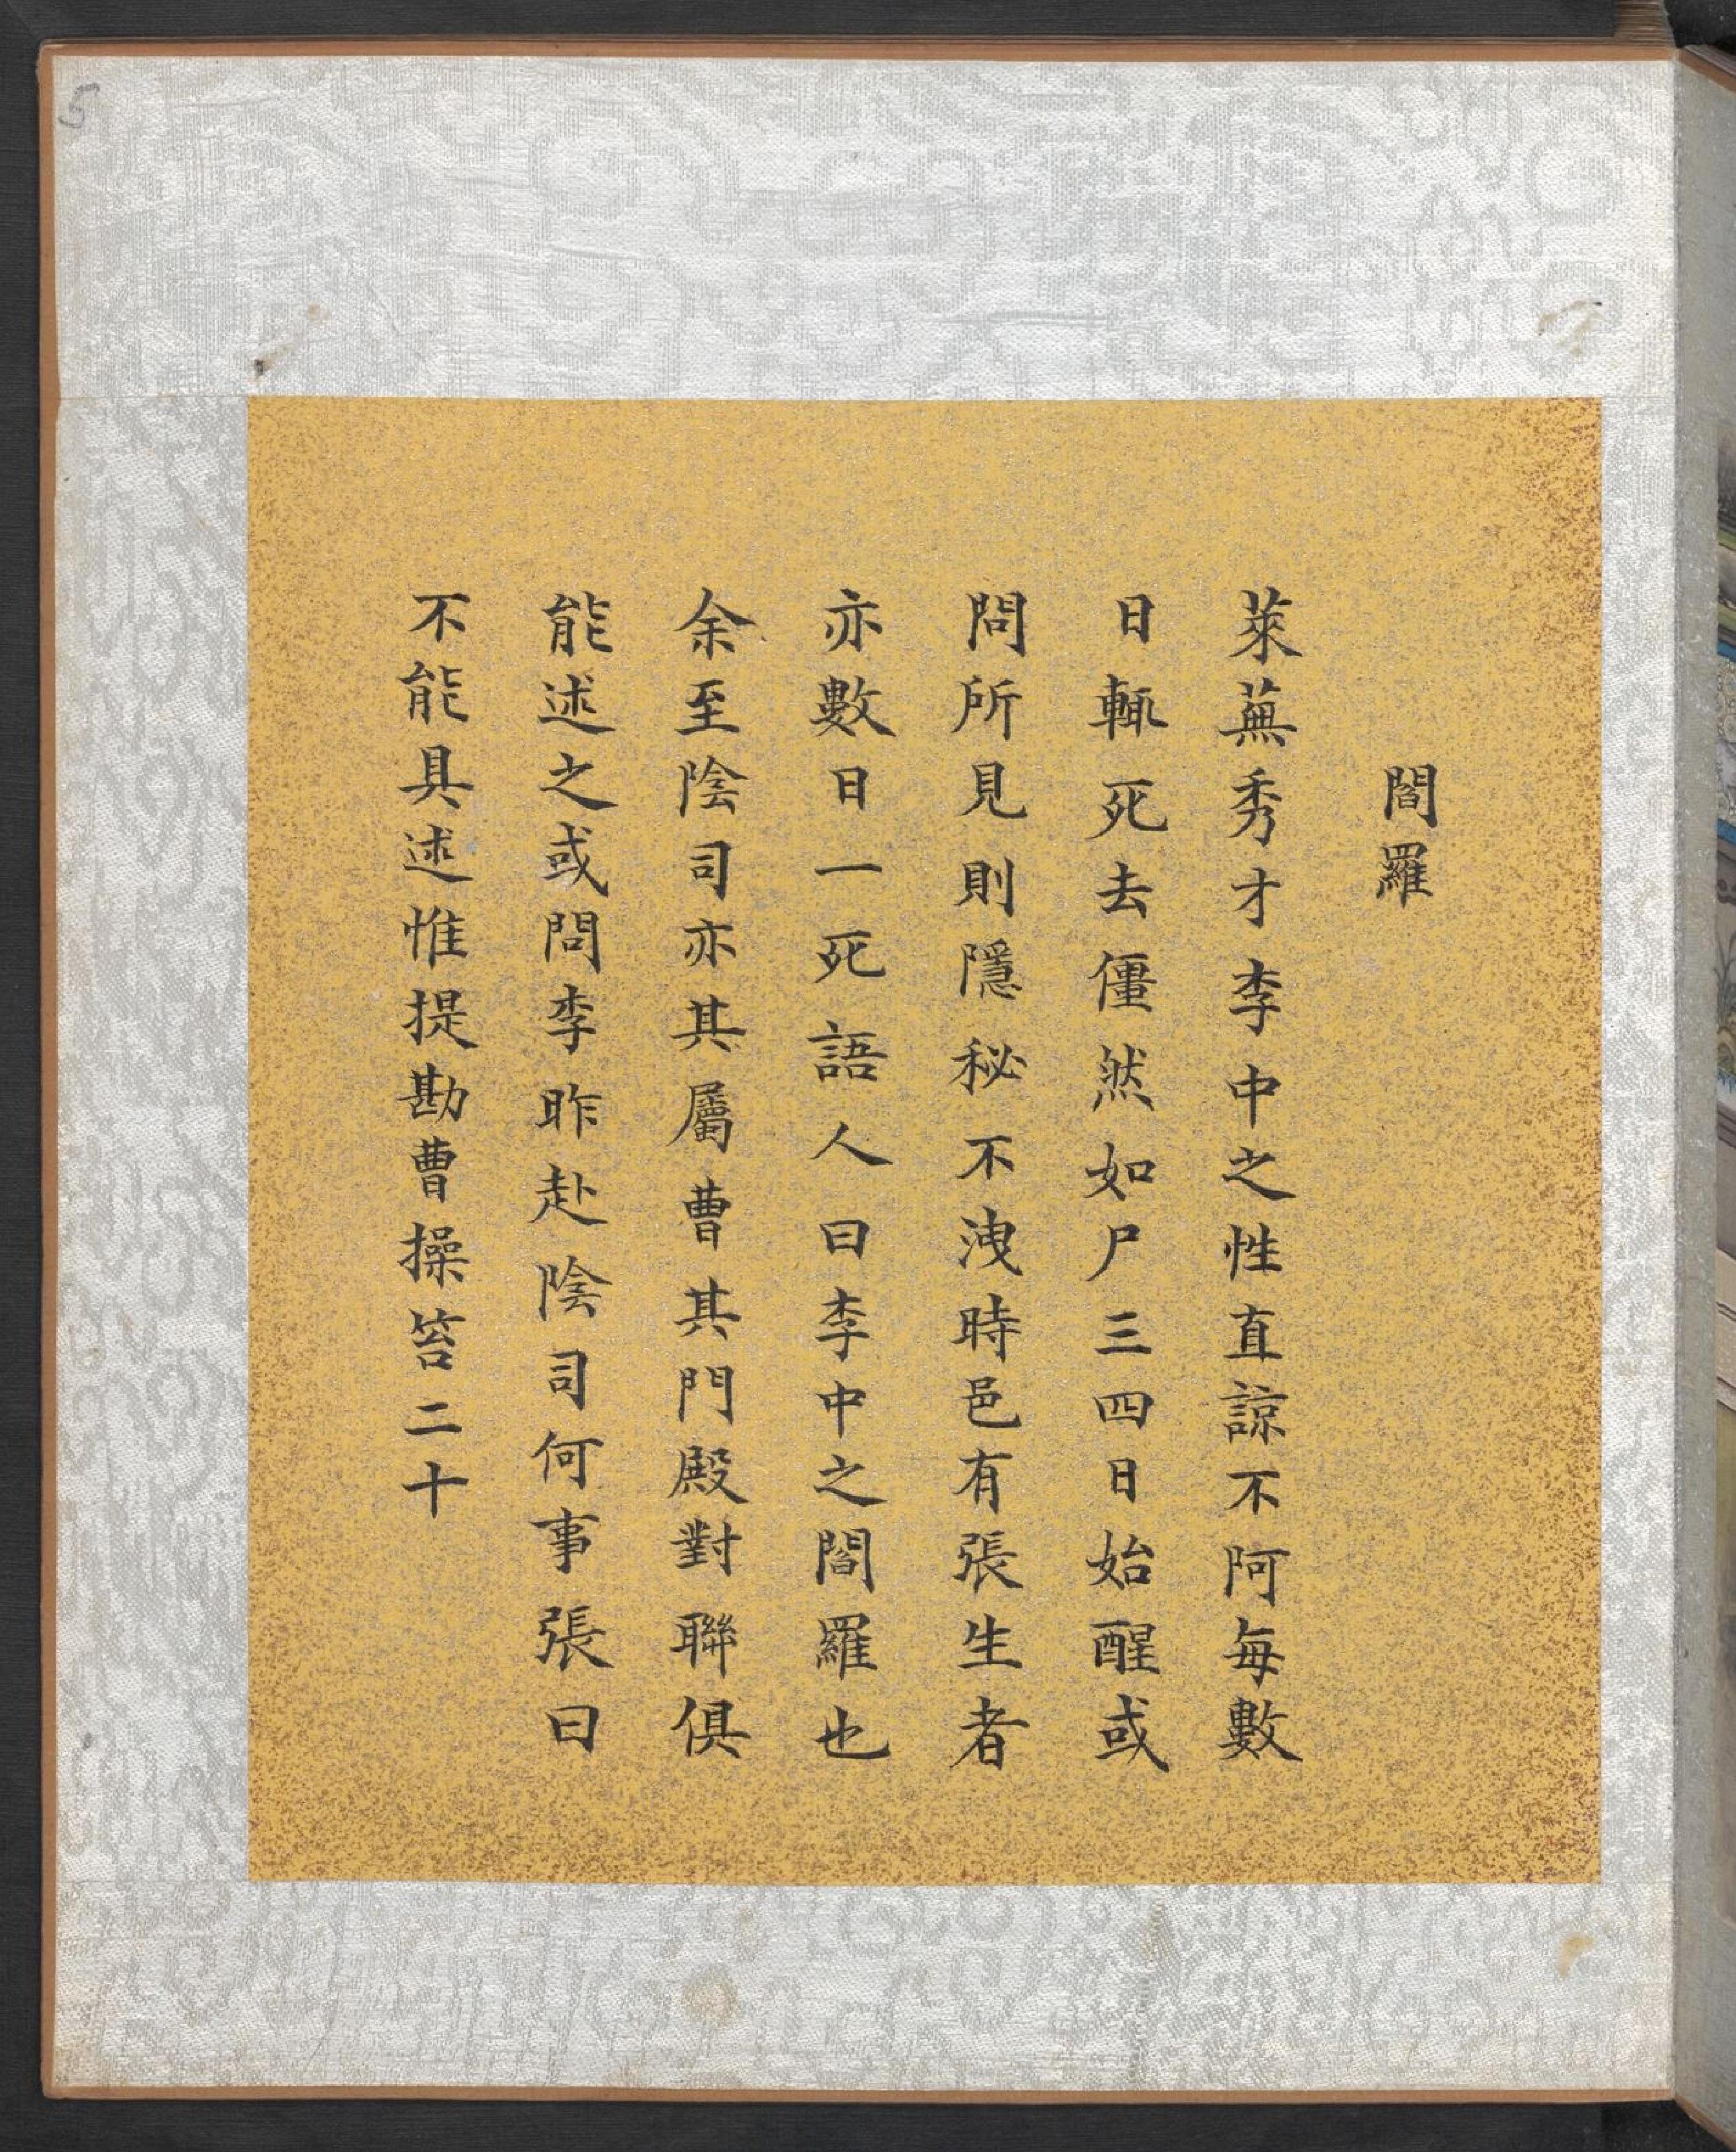 閻羅
萊蕪秀才李中之性直諒不阿每數
日輒死去僵然如尸三四日始醒或
問所見則隱秘不洩時邑有張生者
亦數日一死語人曰李中之閻羅也
余至陰司亦其屬曹其門殿對聯俱
能述之或問李昨赴陰司何事張曰
不能具述惟提勘曹操笞二十
5